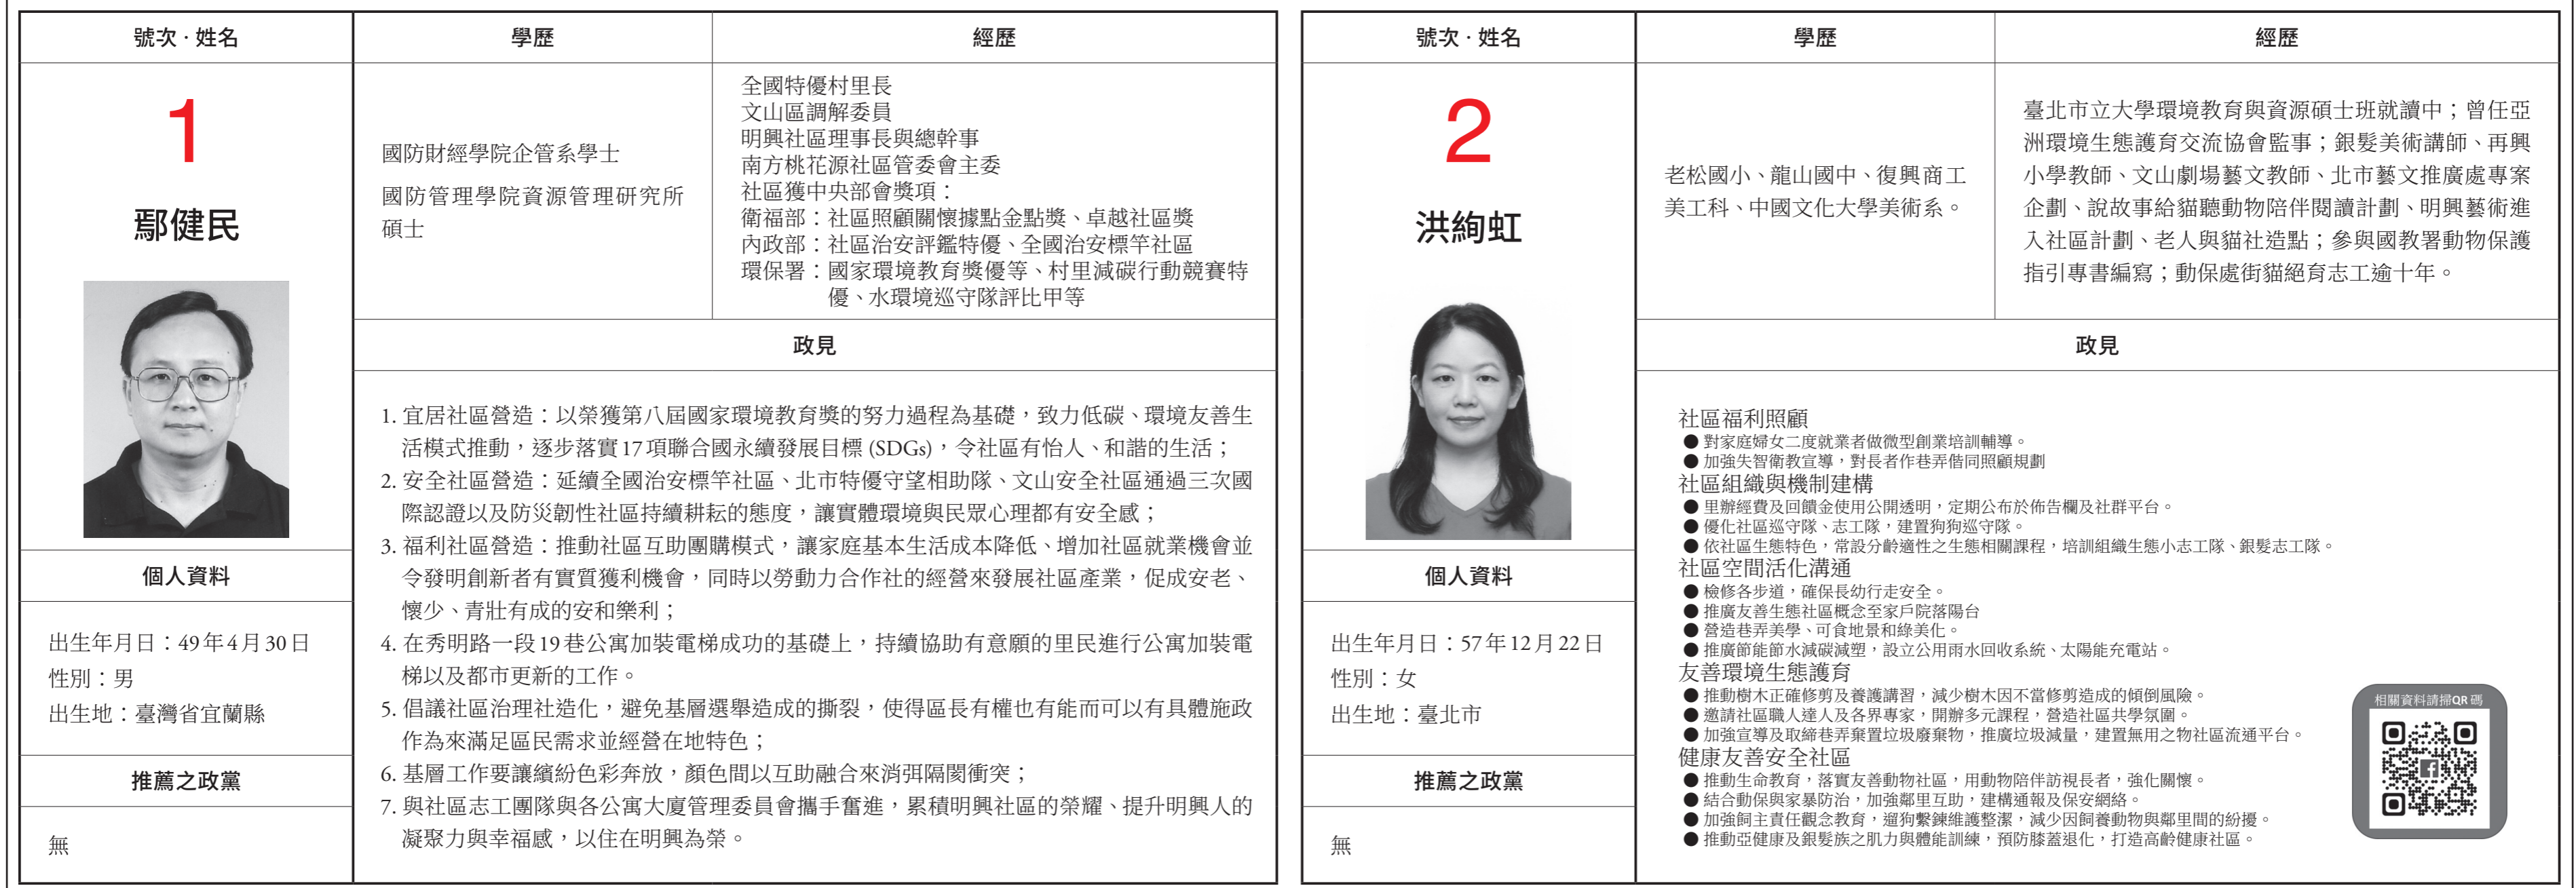 號次·姓名
學歷
經歷
1
鄢健民
國防財經學院企管系學士
國防管理學院資源管理研究所
碩士
全國特優村里長
文山區調解委員
明興社區理事長與總幹事
南方桃花源社區管委會主委
社區獲中央部會獎項：
衛福部：社區照顧關懷據點金點獎、卓越社區獎
內政部：社區治安評鑑特優、全國治安標竿社區
環保署：國家環境教育獎優等、村里減碳行動競賽特
優、水環境巡守隊評比甲等
個人資料
出生年月日：49年4月30日
性別：男
出生地：臺灣省宜蘭縣
推薦之政黨
無
政見
1. 宜居社區營造：以榮獲第八屆國家環境教育獎的努力過程為基礎，致力低碳、環境友善生
活模式推動，逐步落實17項聯合國永續發展目標 (SDGs)，令社區有怡人、和諧的生活；
2. 安全社區營造：延續全國治安標竿社區、北市特優守望相助隊、文山安全社區通過三次國
際認證以及防災韌性社區持續耕耘的態度，讓實體環境與民眾心理都有安全感；
3. 福利社區營造：推動社區互助團購模式，讓家庭基本生活成本降低、增加社區就業機會並
令發明創新者有實質獲利機會，同時以勞動力合作社的經營來發展社區產業，促成安老、
懷少、青壯有成的安和樂利；
4. 在秀明路一段19巷公寓加裝電梯成功的基礎上，持續協助有意願的里民進行公寓加裝電
梯以及都市更新的工作。
5. 倡議社區治理社造化，避免基層選舉造成的撕裂，使得區長有權也有能而可以有具體施政
作為來滿足區民需求並經營在地特色；
6. 基層工作要讓繽紛色彩奔放，顏色間以互助融合來消弭隔閡衝突；
7. 與社區志工團隊與各公寓大廈管理委員會攜手奮進，累積明興社區的榮耀、提升明興人的
凝聚力與幸福感，以住在明興為榮。
號次·姓名
學歷
經歷
2
洪絢虹
老松國小、龍山國中、復興商工
美工科、中國文化大學美術系。
臺北市立大學環境教育與資源碩士班就讀中；曾任亞
洲環境生態護育交流協會監事；銀髮美術講師、再興
小學教師、文山劇場藝文教師、北市藝文推廣處專案
企劃、說故事給貓聽動物陪伴閱讀計劃、明興藝術進
入社區計劃、老人與貓社造點；參與國教署動物保護
指引專書編寫；動保處街貓絕育志工逾十年。
個人資料
出生年月日：57年12月22日
性別：女
出生地：臺北市
推薦之政黨
無
政見
社區福利照顧
● 對家庭婦女二度就業者做微型創業培訓輔導。
● 加強失智衛教宣導，對長者作巷弄偕同照顧規劃
社區組織與機制建構
● 里辦經費及回饋金使用公開透明，定期公布於佈告欄及社群平台。
● 優化社區巡守隊、志工隊，建置狗狗巡守隊。
● 依社區生態特色，常設分齡適性之生態相關課程，培訓組織生態小志工隊、銀髮志工隊。
社區空間活化溝通
● 檢修各步道，確保長幼行走安全。
● 推廣友善生態社區概念至家戶院落陽台
● 營造巷弄美學、可食地景和綠美化。
● 推廣節能節水減碳減塑，設立公用雨水回收系統、太陽能充電站。
友善環境生態護育
● 推動樹木正確修剪及養護講習，減少樹木因不當修剪造成的傾倒風險。
● 邀請社區職人達人及各界專家，開辦多元課程，營造社區共學氛圍。
● 加強宣導及取締巷弄棄置垃圾廢棄物，推廣垃圾減量，建置無用之物社區流通平台。
健康友善安全社區
● 推動生命教育，落實友善動物社區，用動物陪伴訪視長者，強化關懷。
● 結合動保與家暴防治，加強鄰里互助，建構通報及保安網絡。
● 加強飼主責任觀念教育，遛狗繫鍊維護整潔，減少因飼養動物與鄰里間的紛擾。
● 推動亞健康及銀髮族之肌力與體能訓練，預防膝蓋退化，打造高齡健康社區。
相關資料請掃QR碼